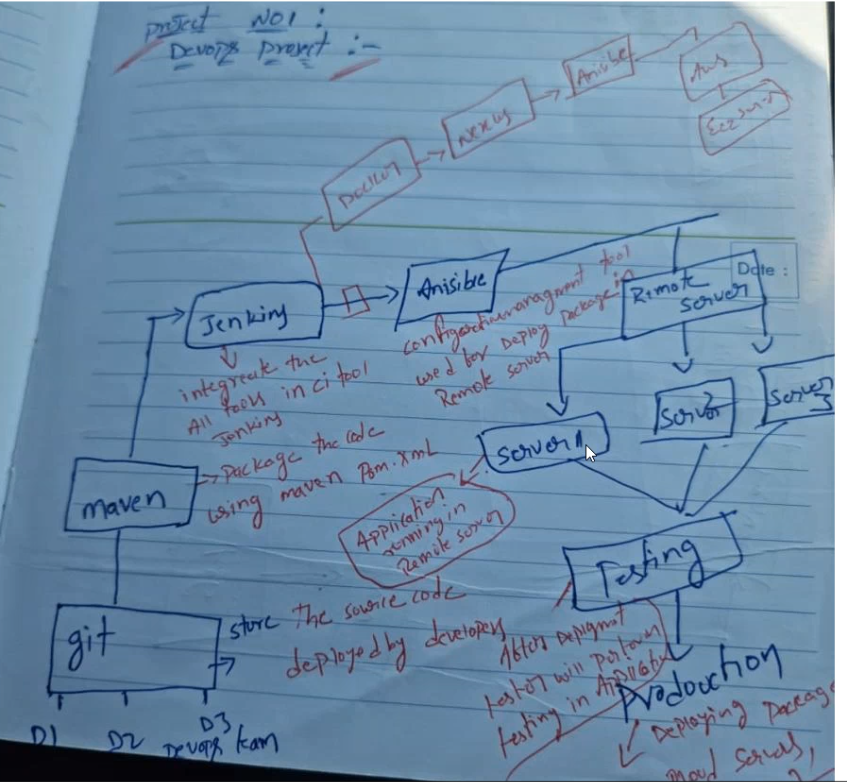 Project NO1 :
Devops Project :-
Docker
Nexus
Anisible
Aws
Ec2
Date :
Jenking
Anisible
Remote
server
integreate the
All tools in ci tool
Jenking
configaration managment tool
used for Deploy package in
Remote server
server 1
server
server
3
maven
package the code
using maven Pom.xml
Application
running in
Remote server
git
store the source code
deployed by developers
Testing
After Deployment
will perform
testing in Application
production
Deploying package
servers,
D1
D2
D3
Devops team